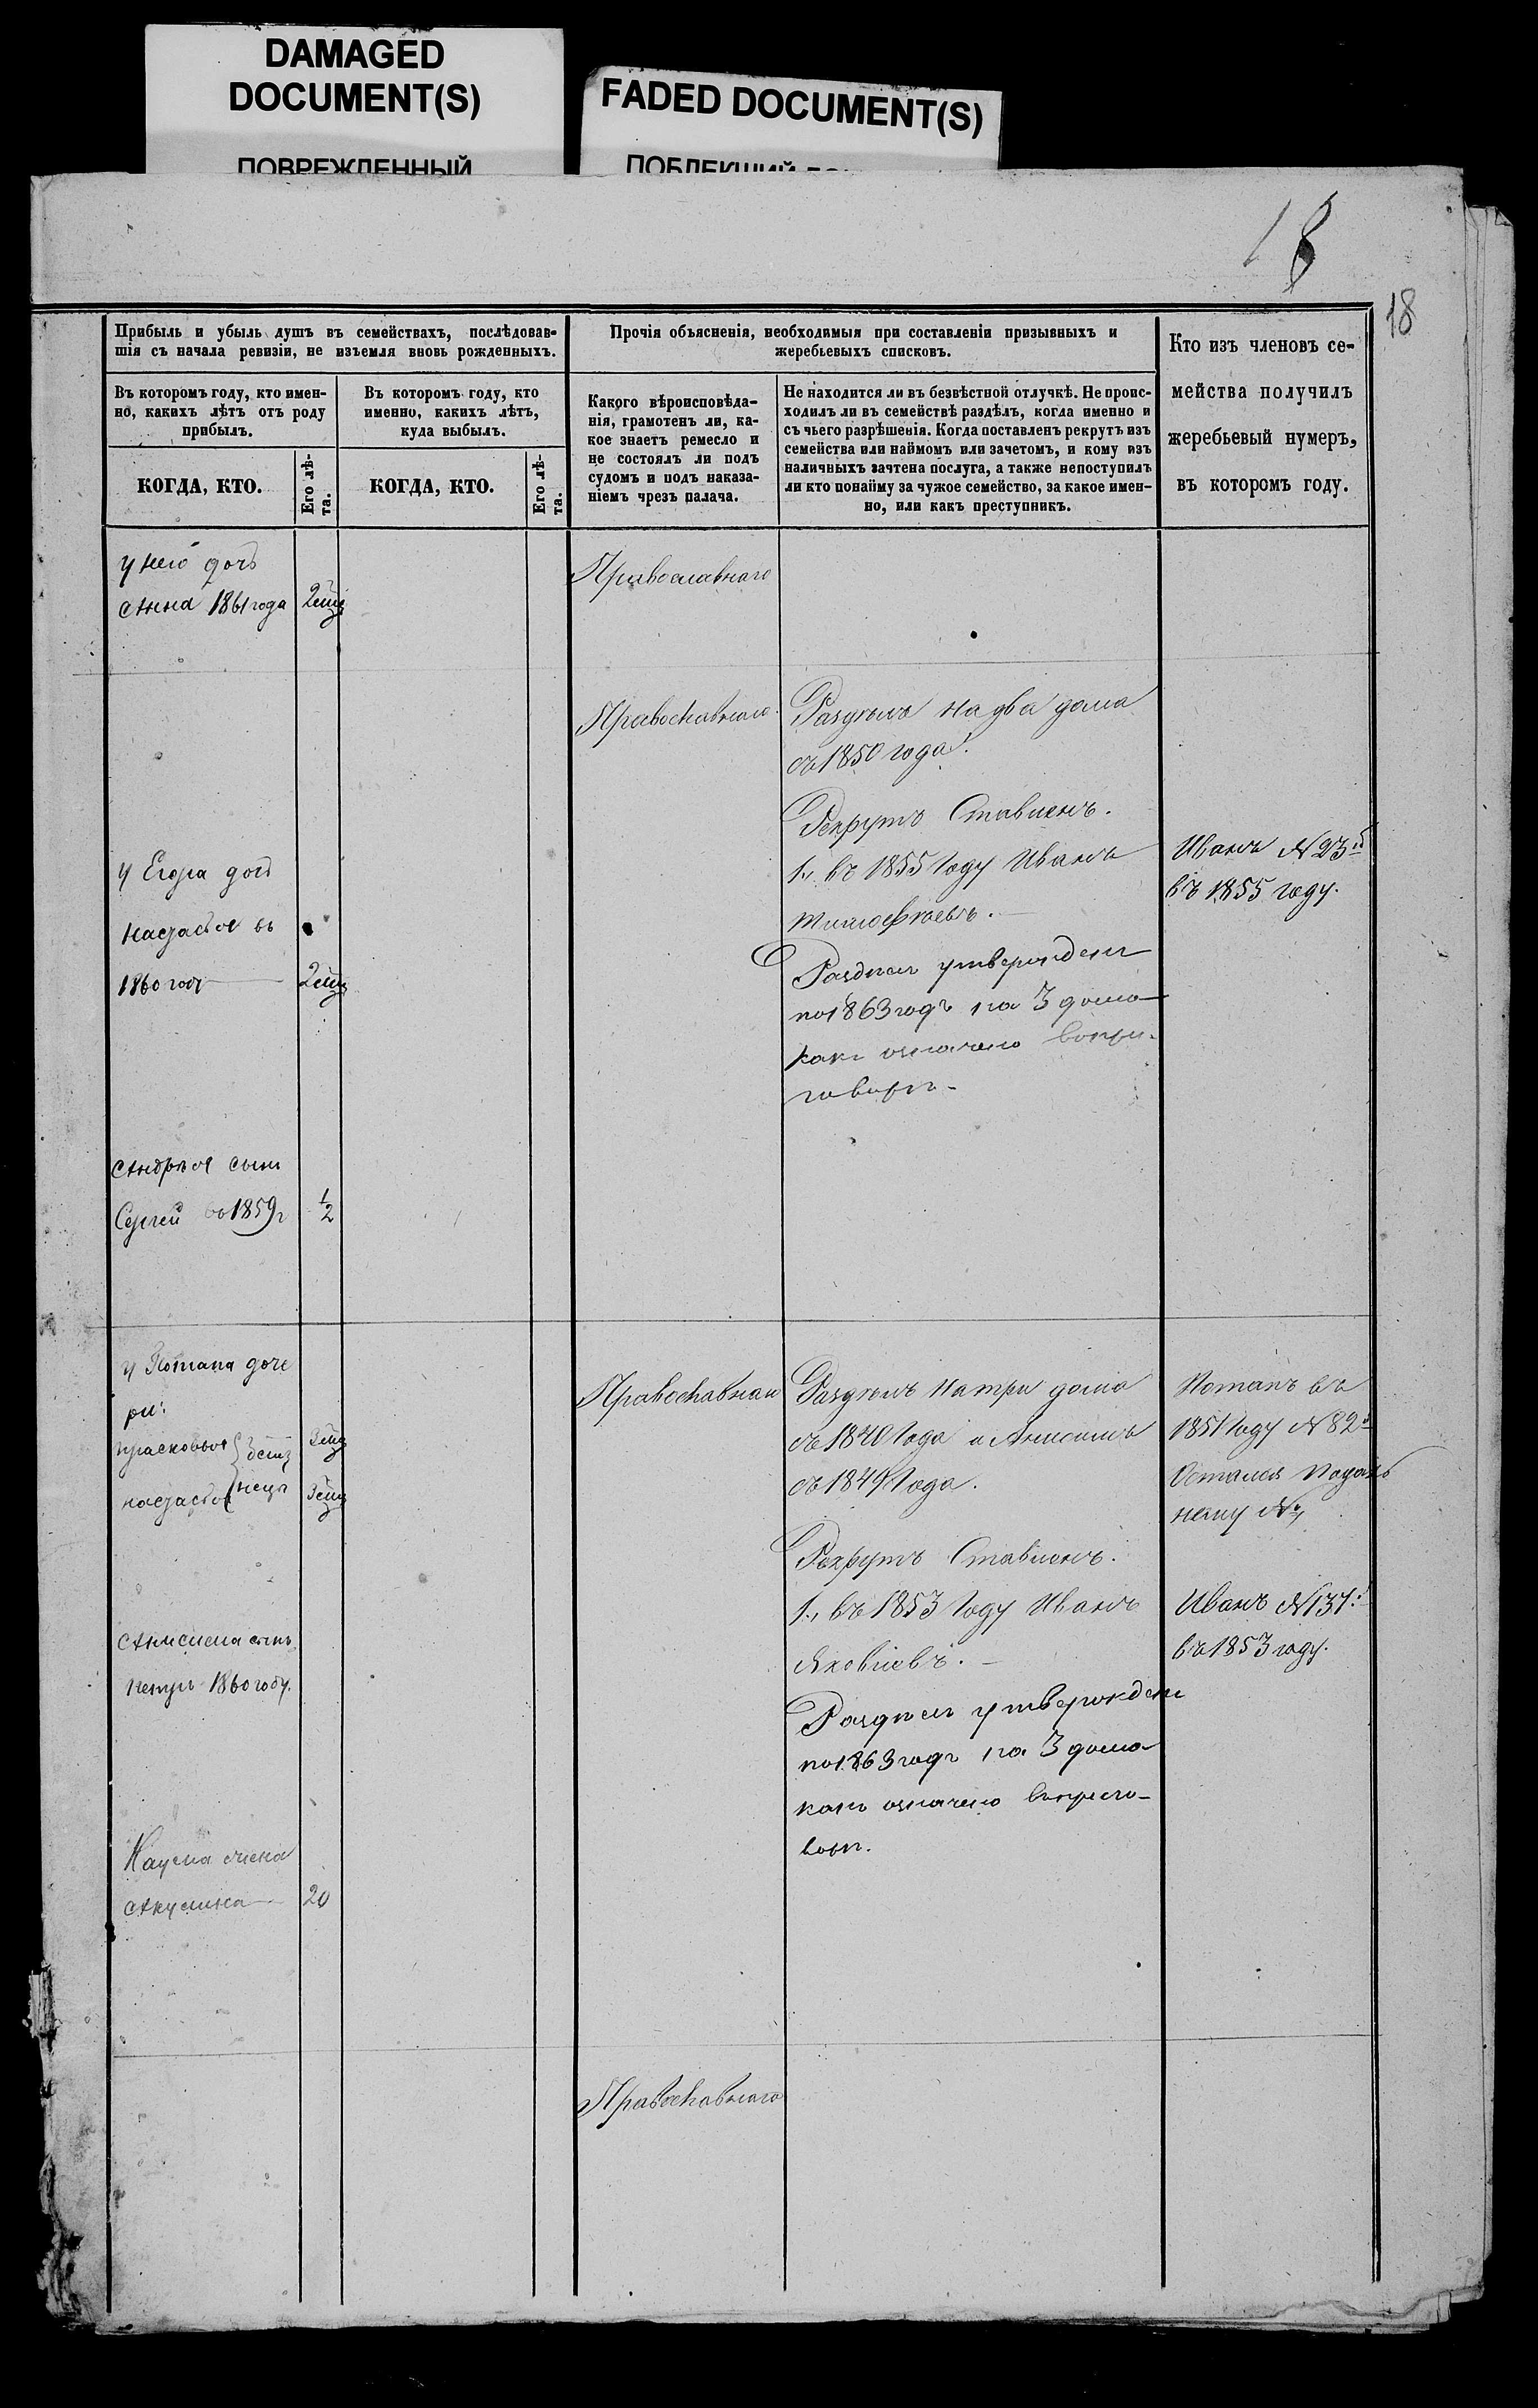 DAMAGED
DOCUMENT(S)
ПОВРЕЖДЕННЫЙ
FADED DOCUMENT(S)
ПОБЛЕКШИЙ
18
18
Прибыль и убыль душъ въ семействахъ, послѣдовав-
шія съ начала ревизіи, не изъемля вновь рожденныхъ.
Въ которомъ году, кто имен-
но, какихъ лѣтъ отъ роду
прибылъ.
КОГДА, КТО.
Его лѣ-
та.
Въ которомъ году, кто
именно, какихъ лѣтъ,
куда выбылъ.
КОГДА, КТО.
Его лѣ-
та.
Прочія объясненія, необходимыя при составленіи призывныхъ и
жеребьевыхъ списковъ.
Какого вѣроисповѣда-
нія, грамотенъ ли, ка-
кое знаетъ ремесло и
не состоялъ ли подъ
судомъ и подъ наказа-
ніемъ чрезъ палача.
Не находится ли въ безвѣстной отлучкѣ. Не проис-
ходилъ ли въ семействѣ раздѣлъ, когда именно и
съ чьего разрѣшенія. Когда поставленъ рекрутъ изъ
семейства или наймомъ или зачетомъ, и кому изъ
наличныхъ зачтена послуга, а также непоступилъ
ли кто понайму за чужое семейство, за какое имен-
но, или какъ преступникъ.
Кто изъ членовъ се-
мейства получилъ
жеребьевый нумеръ,
въ которомъ году.
у него дочь
Анна 1861 года
Православнаго
Православнаго
Раздѣлъ на два дома
съ 1850 года.
Рекрутъ Ставленъ.
1., въ 1855 Году Иванъ
Тимофѣевъ.
Раздѣлъ утвержденъ
по 1863 годъ на 3 дома
какъ означено въ при-
говорѣ.
Иванъ № 23й
въ 1855 году.
у Егора дочь
Настасья въ
1860 году
Андрея сынъ
Сергей въ 1859 г
1/2
у Потапа доче
ри:
прасковья
настасья
Православнаго
Раздѣлъ на три дома
съ 1840 Года и Анисимъ
съ 1849 Года.
Рекрутъ Ставленъ.
1., въ 1853 Году Иванъ
Яковлевъ.
Раздѣлъ утвержденъ
по 1863 годъ на 3 дома
какъ означено въ приго-
ворѣ.
Потапъ въ
1851 Году № 82й
Остался по
нему №
Иванъ № 137й
въ 1853 году.
Анисима сынъ
петръ 1860 году.
Наума жена
Акулина 20
Православнаго